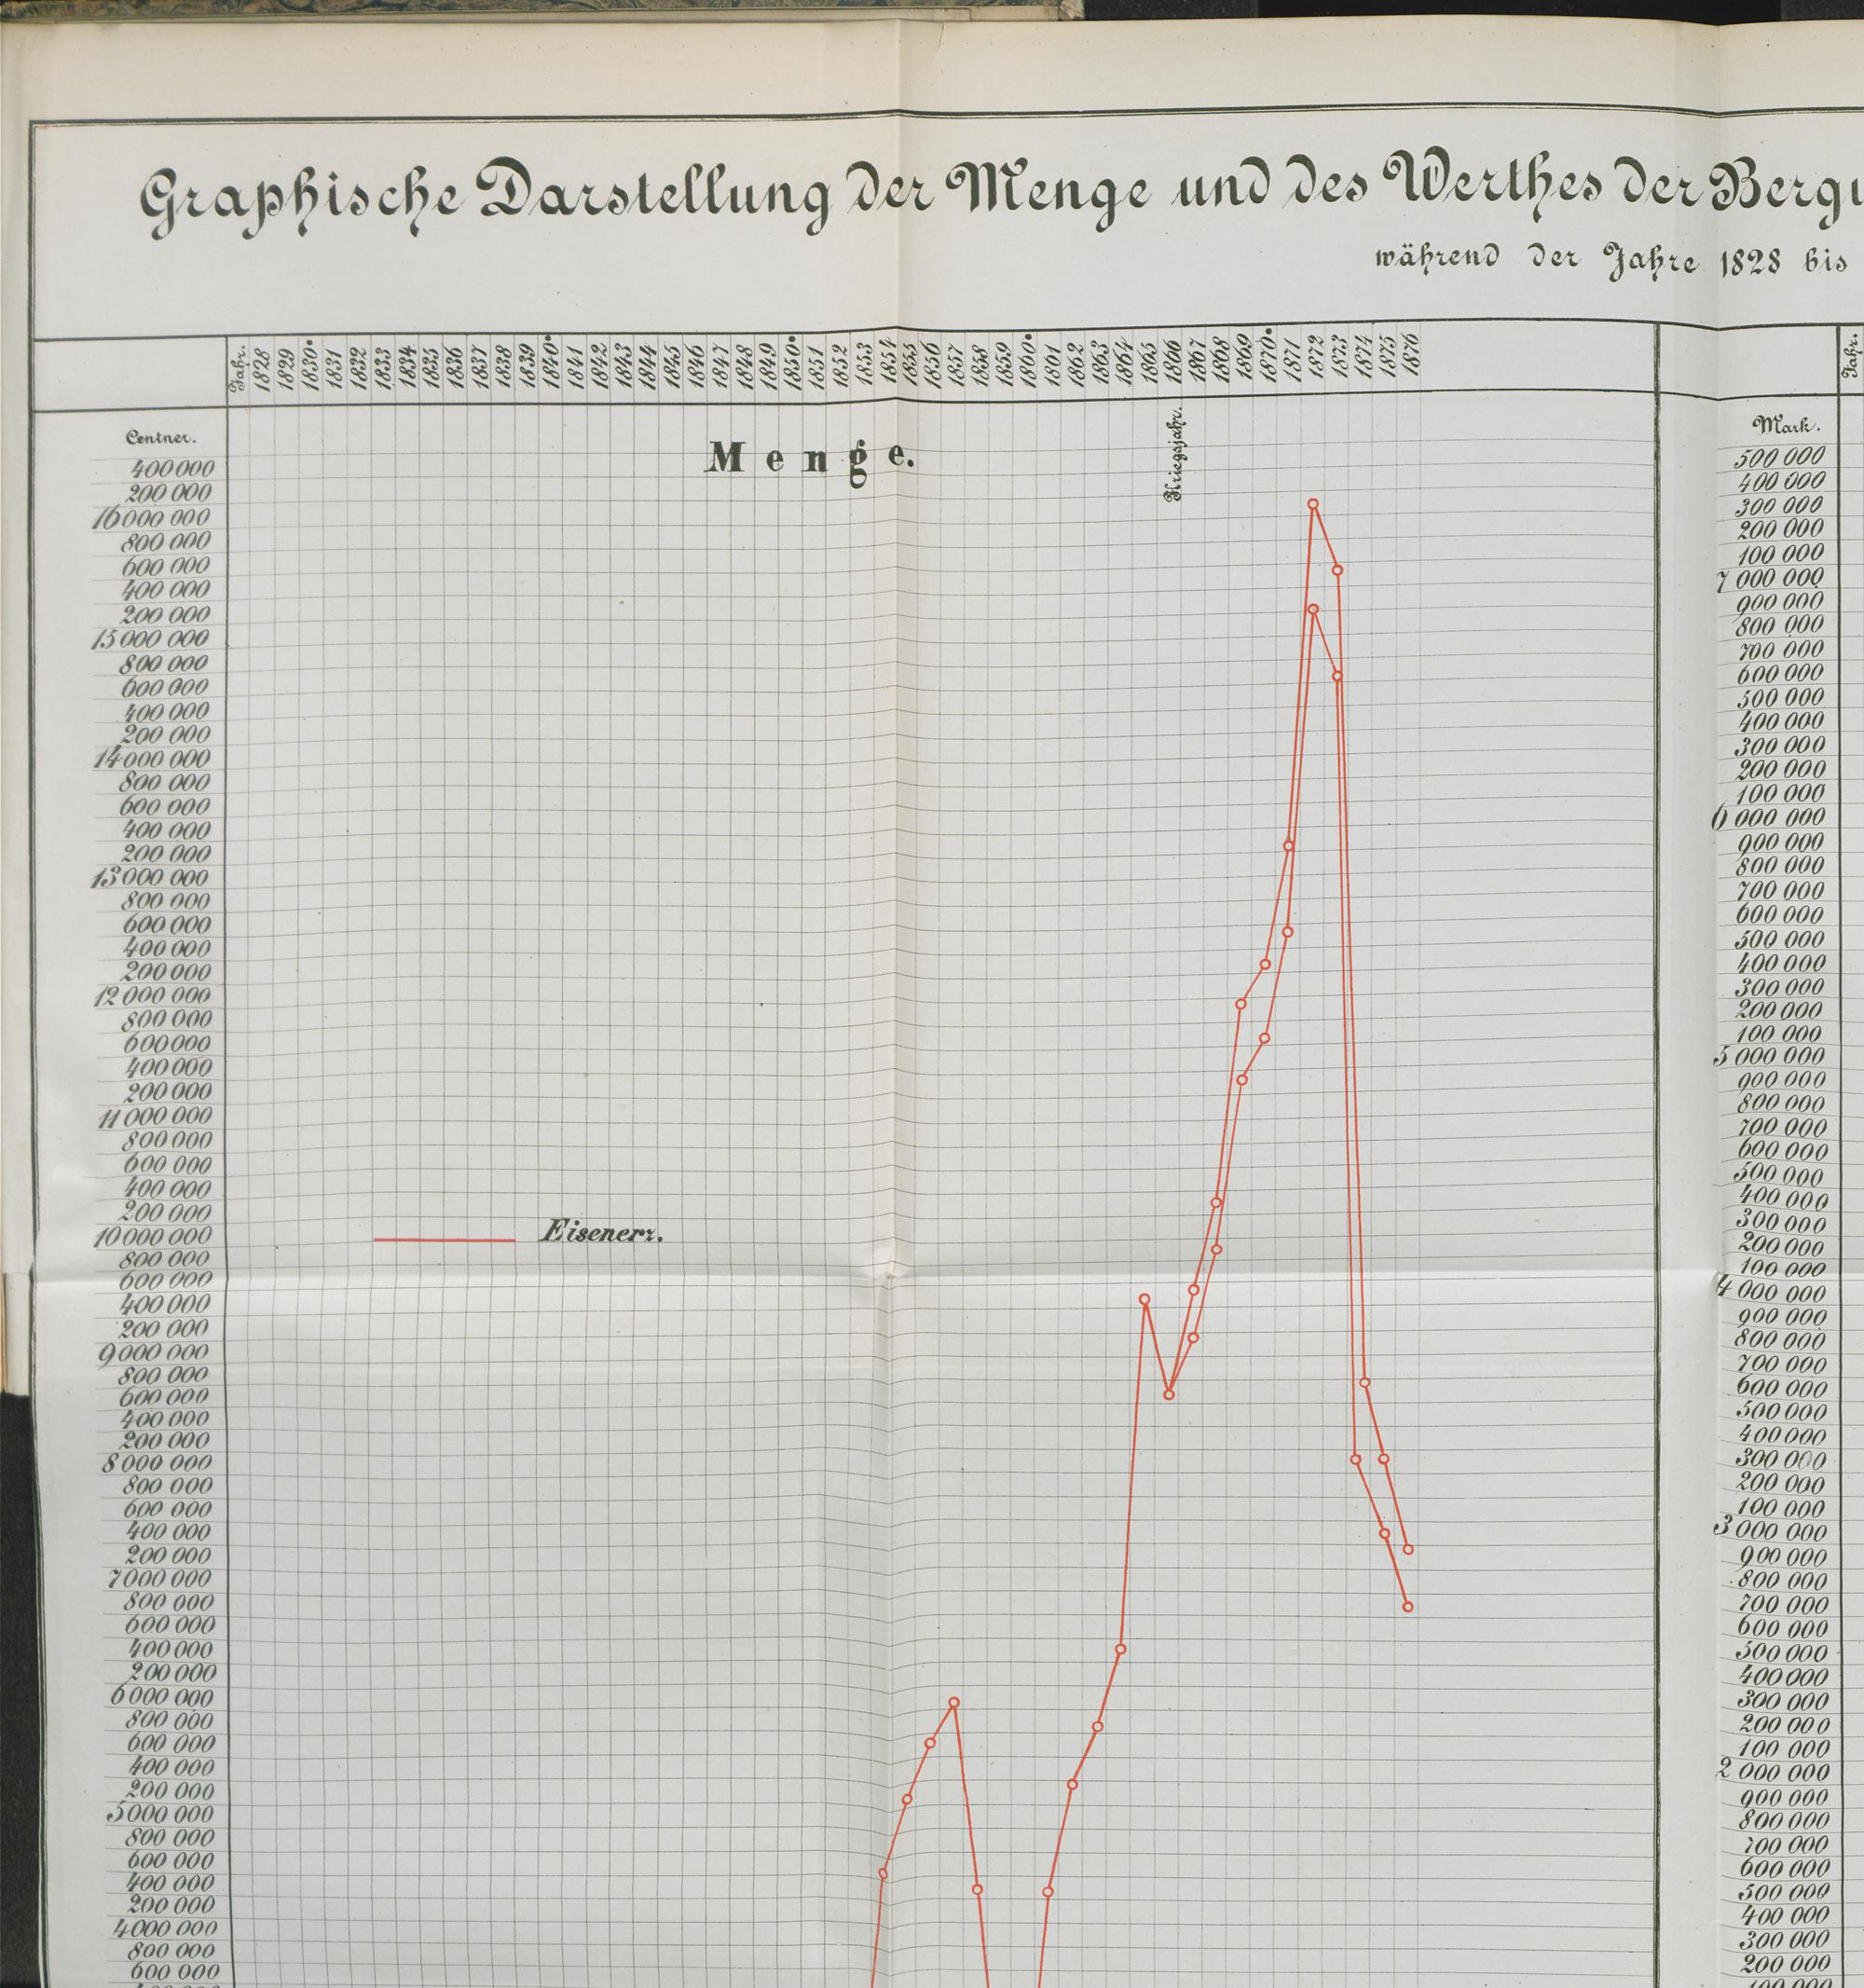 Graphische Darstellung der Menge und des Werthes der Berg
während der Jahre 1828 bis
Jahr. 1828 1829 1830 1831 1832 1833 1834 1835 1836 1837 1838 1839 1840 1841 1842 1843 1844 1845 1846 1847 1848 1849 1850 1851 1852 1853 1854 1855 1856 1857 1858 1859 1860 1861 1862 1863 1864 1865 1866 1867 1868 1869 1870 1871 1872 1873 1874 1875 1876
Jahr.
Centner.
400 000
200 000
16 000 000
800 000
600 000
400 000
200 000
15 000 000
800 000
600 000
400 000
200 000
14 000 000
800 000
600 000
400 000
200 000
13 000 000
800 000
600 000
400 000
200 000
12 000 000
800 000
600 000
400 000
200 000
11 000 000
800 000
600 000
400 000
200 000
10 000 000
800 000
600 000
400 000
200 000
9 000 000
800 000
600 000
400 000
200 000
8 000 000
800 000
600 000
400 000
200 000
7 000 000
800 000
600 000
400 000
200 000
6 000 000
800 000
600 000
400 000
200 000
5 000 000
800 000
600 000
400 000
200 000
4 000 000
800 000
600 000
Menge.
Kriegsjahr.
Eisenerz.
Mark.
500 000
400 000
300 000
200 000
100 000
7 000 000
900 000
800 000
700 000
600 000
500 000
400 000
300 000
200 000
100 000
6 000 000
900 000
800 000
700 000
600 000
500 000
400 000
300 000
200 000
100 000
5 000 000
900 000
800 000
700 000
600 000
500 000
400 000
300 000
200 000
100 000
4 000 000
900 000
800 000
700 000
600 000
500 000
400 000
300 000
200 000
100 000
3 000 000
900 000
800 000
700 000
600 000
500 000
400 000
300 000
200 000
100 000
2 000 000
900 000
800 000
700 000
600 000
500 000
400 000
300 000
200 000